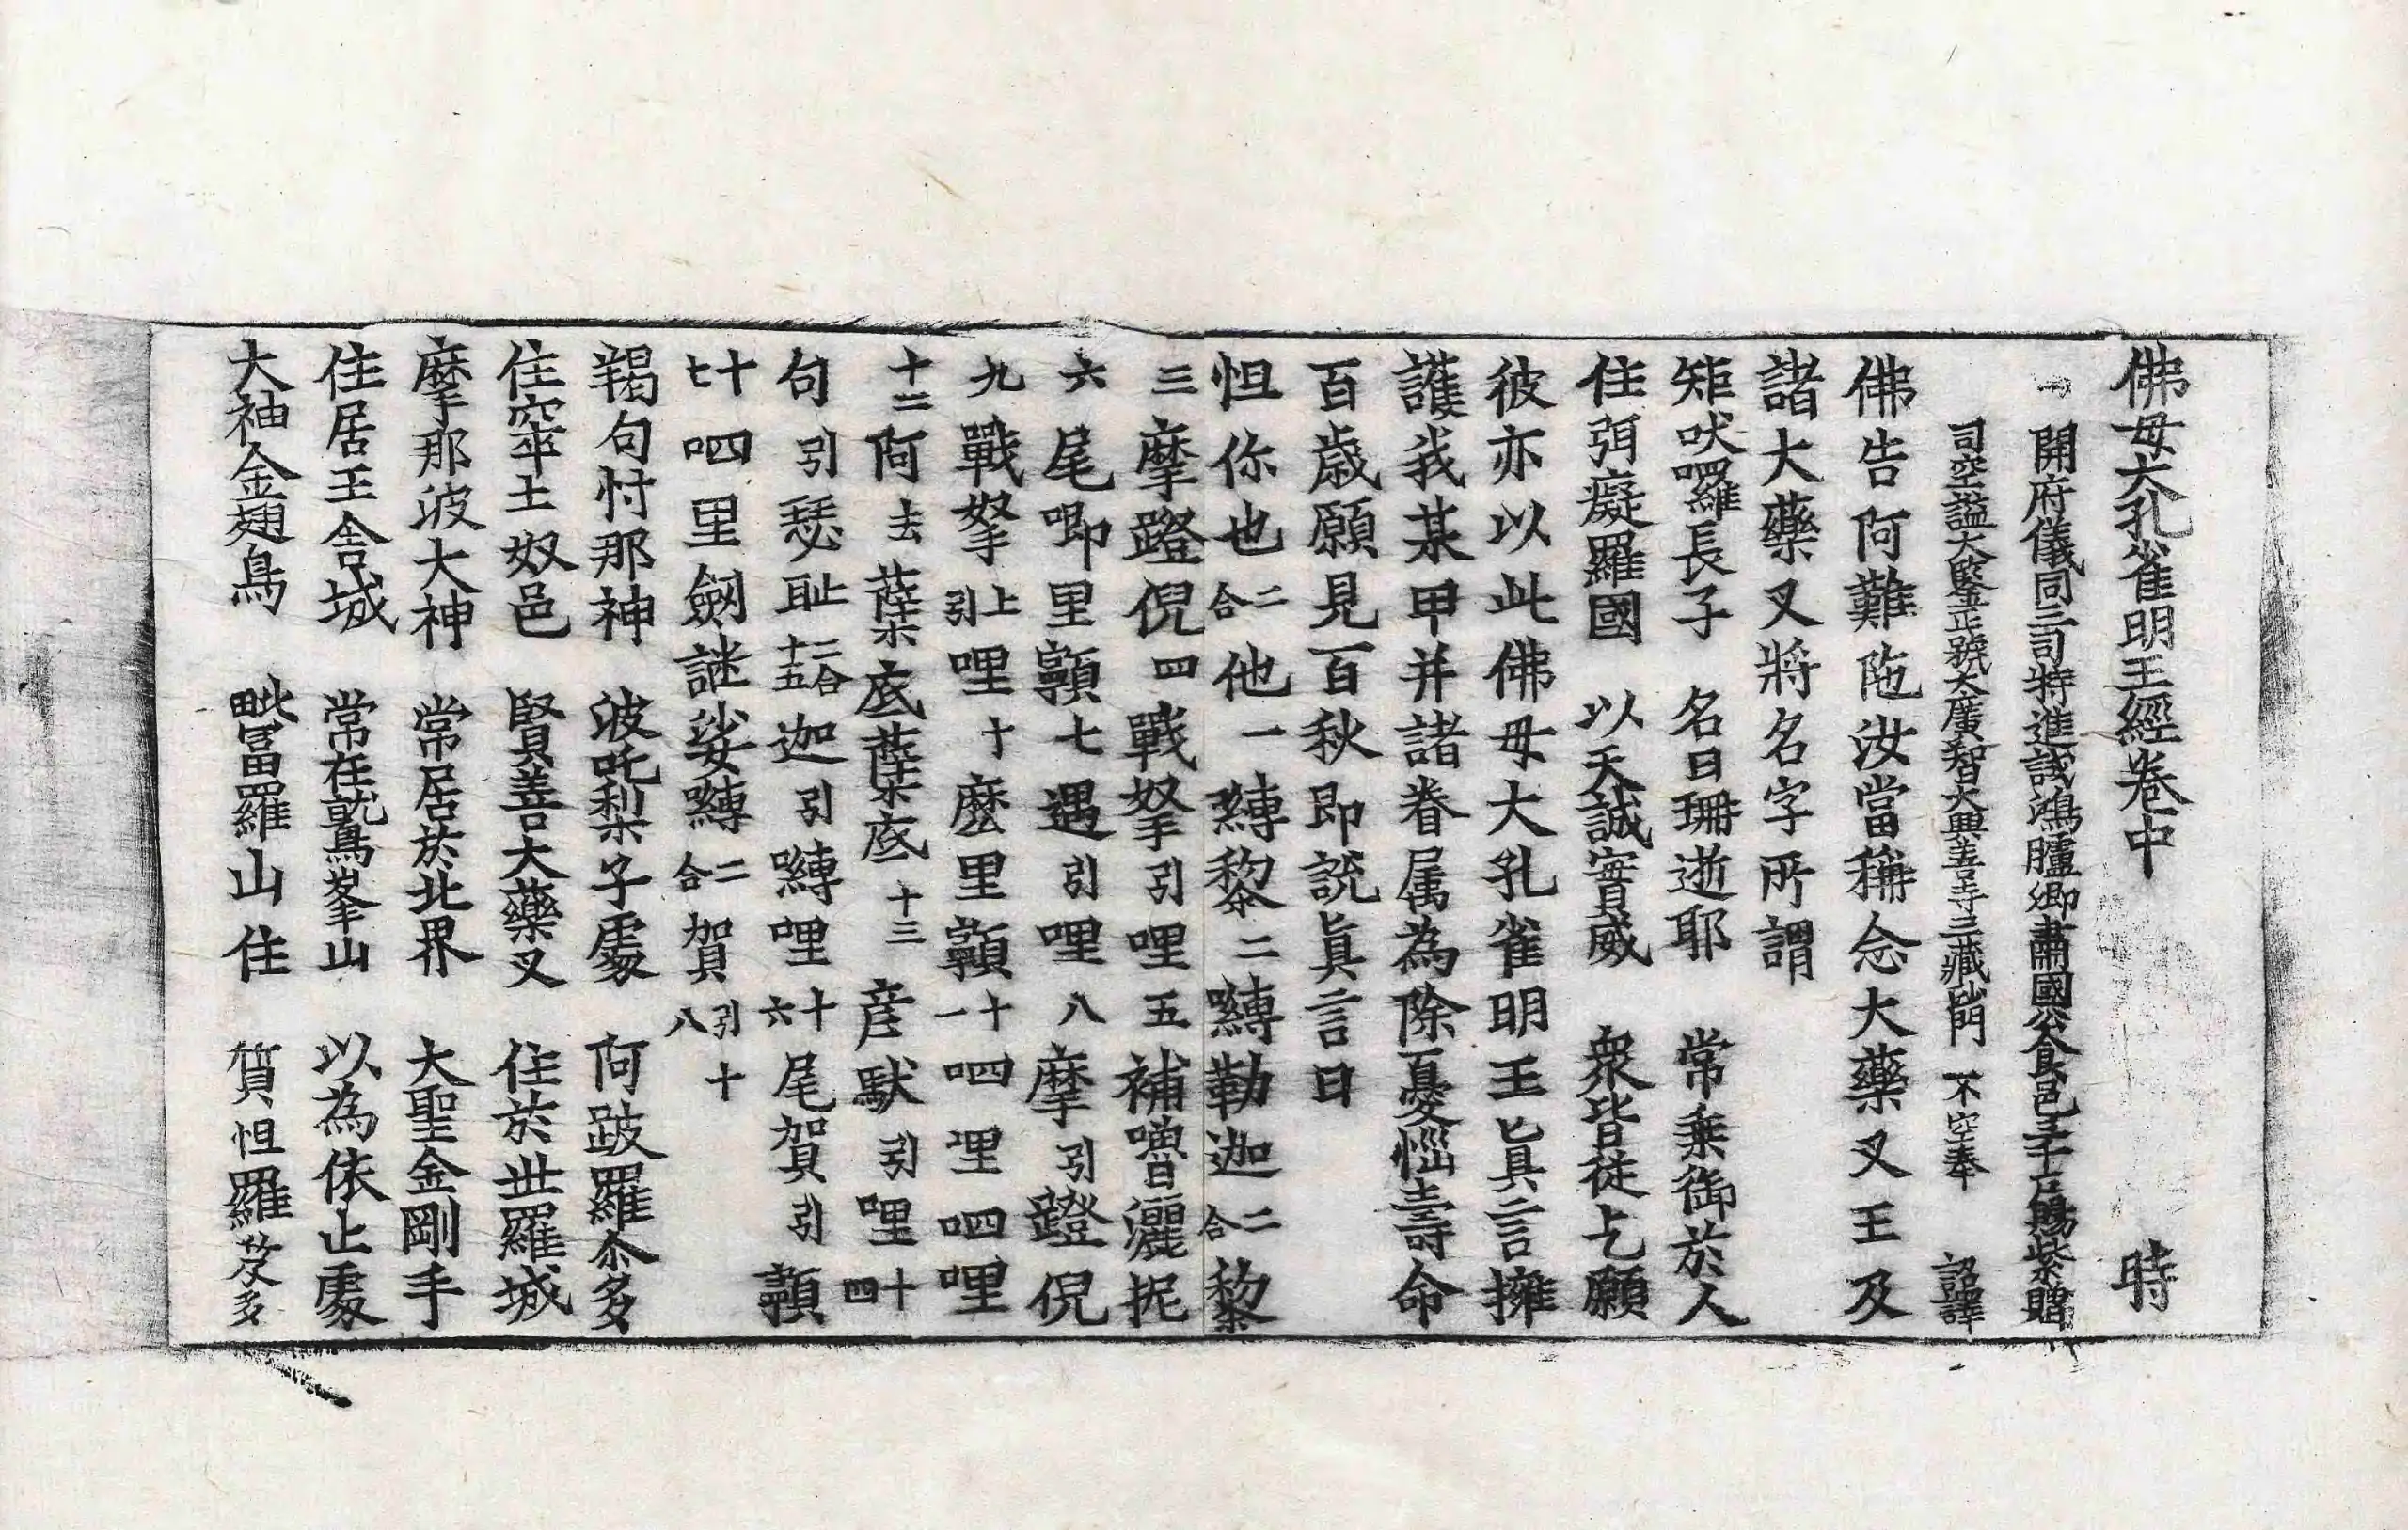 佛母大孔雀明王經卷中 時
開府儀同三司特進試鴻臚卿肅國公食邑三千戶賜紫贈
司空謚大鑒正號大廣智大興善寺三藏沙門 不空奉 詔譯
佛告阿難陁汝當稱念大藥叉王及
諸大藥叉將名字所謂
矩吠囉長子 名曰珊逝耶 常乗御於人
住弭癡羅國 以天誠實威 衆皆從乞願
彼亦以此佛母大孔雀明王真言擁
護我某甲并諸眷属為除憂惱壽命
百歳願見百秋即説真言曰
怛你也二合他一 嚩黎二嚩勒迦二合黎
三摩蹬倪四 戰拏引哩五補嚕灑抳
六尾唧里顐七遇引哩八摩引蹬倪
九戰拏上引哩十麼里顐十一呬哩呬哩
十二阿去蘖底蘖底十三彦馱引哩十四
句引瑟耻二合十五迦引嚩哩十六尾賀引顐
十七呬里劍謎娑嚩二合賀引十八
羯句忖那神 波吒梨子處 阿跛羅尒多
住窣土奴邑 賢善大藥叉 住於世羅城
摩那波大神 常居於北界 大聖金剛手
住居王舍城 常在鷲峯山 以為依止處
大神金翅鳥 毗富羅山住 質怛羅芨多